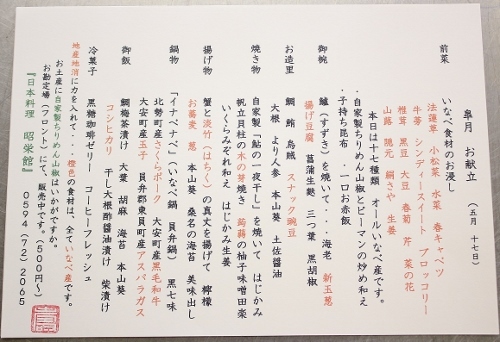 皐月 お献立 (五月 十七日)
前菜 いなべ食材のお浸し
法蓮草 小松菜 水菜 春キャベツ
牛蒡 シンディースイート ブロッコリー
椎茸 黒豆 大豆 春菊 芹 菜の花
山蕗 隠元 絹さや 生姜
本日は十七種類 オールいなべ産です。
・自家製ちりめん山椒とピーマンの炒め和え
・子持ち昆布 ・一口お赤飯
御椀 鱸(すずき)を焼いて・・・海老 新玉葱
揚げ豆腐 菖蒲生麩 三つ葉 黒胡椒
お造里 鯛 鮪 烏賊 スナック豌豆
大根 より人参 本山葵 土佐醤油
焼き物 自家製「鮎の一夜干し」を焼いて はじかみ
帆立貝柱の木の芽焼き 蒟蒻の柚子味噌田楽
いくらみぞれ和え はじかみ生姜
揚げ物 蟹と淡竹(はちく)の真丈を揚げて 檸檬
お蕎麦 葱 本山葵 桑名の海苔 美味出し
鍋物 「イナベナベ」(いなべ鍋 員弁鍋) 黒七味
北勢町産さくらポーク 大安町産黒毛和牛
大安町産玉子 員弁郡東員町産アスパラガス
御飯 鯛梅茶漬け 大葉 胡麻 海苔 本山葵
コシヒカリ 干し大根酢醤油漬け 柴漬け
冷菓子 黒糖珈琲ゼリー コーヒーフレッシュ
地産地消に力を入れて・・・橙色の食材は、全ていなべ産です。
お土産に自家製ちりめん山椒はいかがですか。
お勘定場(フロント)にて、販売中です。(500円〜)
『日本料理 昭栄館』 0594(72)2065